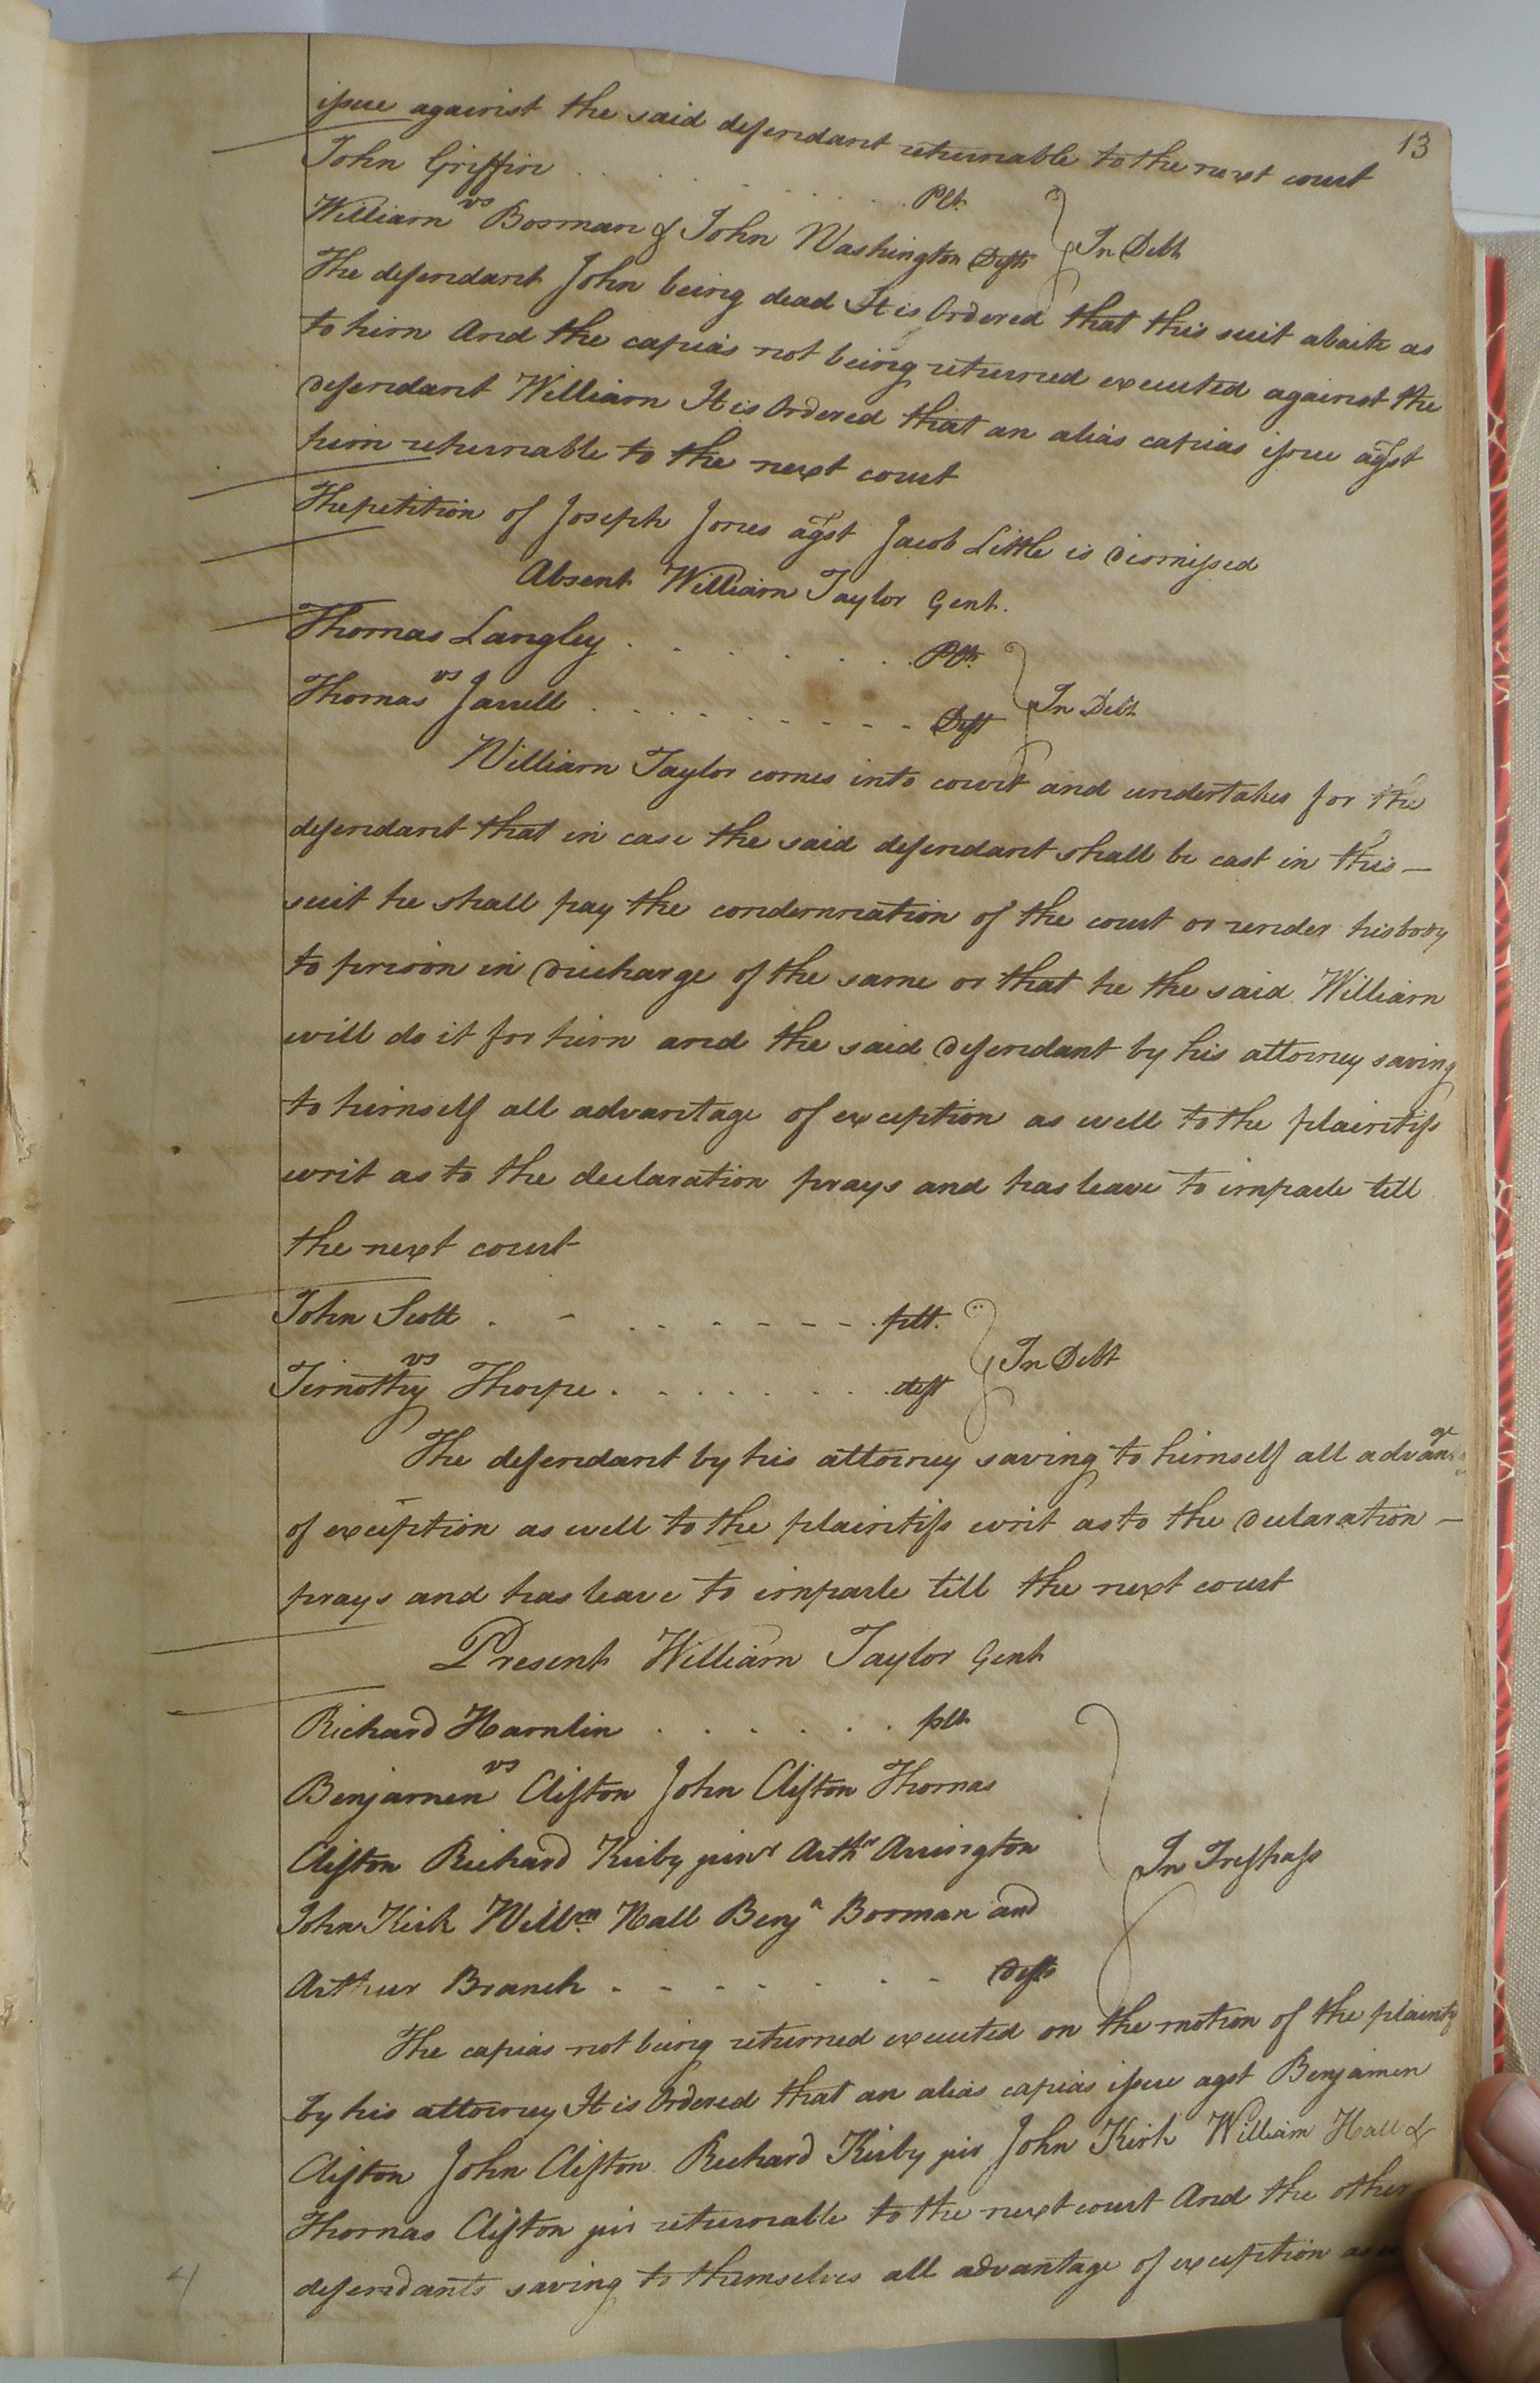 13
issue against the said defendant returnable to the next court
John Griffin . . . . . . . . Plt.
vs
William Bosman & John Washington Defts } In Debt
The defendant John being dead It is Ordered that this suit abaite as
to him And the capias not being returned executed against the
defendant William It is Ordered that an alias capias issue agst
him returnable to the next court
The petition of Joseph Jones agst Jacob Little is dismissed
Absent William Taylor Gent.
Thomas Langley . . . . . . . Plt.
vs
Thomas Jarrell . . . . - - - - - Deft } In Debt
William Taylor comes into court and undertakes for the
defendant that in case the said defendant shall be cast in this —
suit he shall pay the condemnation of the court or render his body
to prison in discharge of the same or that he the said William
will do it for him and the said defendant by his attorney saving
to himself all advantage of exception as well to the plaintiffs
writ as to the declaration prays and has leave to imparle till
the next court
John Scott . - . . - - - - . plt.
vs
Timothy Thorpe . . . . . . . . deft } In Debt
The defendant by his attorney saving to himself all advantage
of exception as well to the plaintiffs writ as to the declaration —
prays and has leave to imparle till the next court
Present William Taylor Gent
Richard Hamlin . . . . . . plt
vs
Benjamen Clifton John Clifton Thomas
Clifton Richard Kirby junr Arthr Arrington
John Kirk Willm Hall Benja Bosman and
Arthur Branch . - - - . . - - Defts } In Trespass
The capias not being returned executed on the motion of the plaintif
by his attorney It is Ordered that an alias capias issue agst Benjamen
Clifton John Clifton Richard Kirby jur John Kirk William Hall &
Thomas Clifton jur returnable to the next court And the other
defendants saving to themselves all advantage of exception as
4